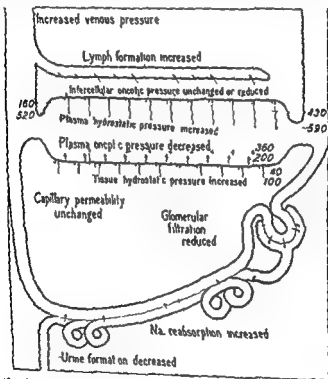 Increased venous pressure
Lymph formation increased
Intercellular oncotic pressure unchanged or reduced
160
520
430
590
Plasma hydrostatic pressure increased
Plasma oncotic pressure decreased
360
200
Tissue hydrostatic pressure increased
40
100
Capillary permeability
unchanged
Glomerular
filtration
reduced
Na. reabsorpion increased
Urine formation decreased